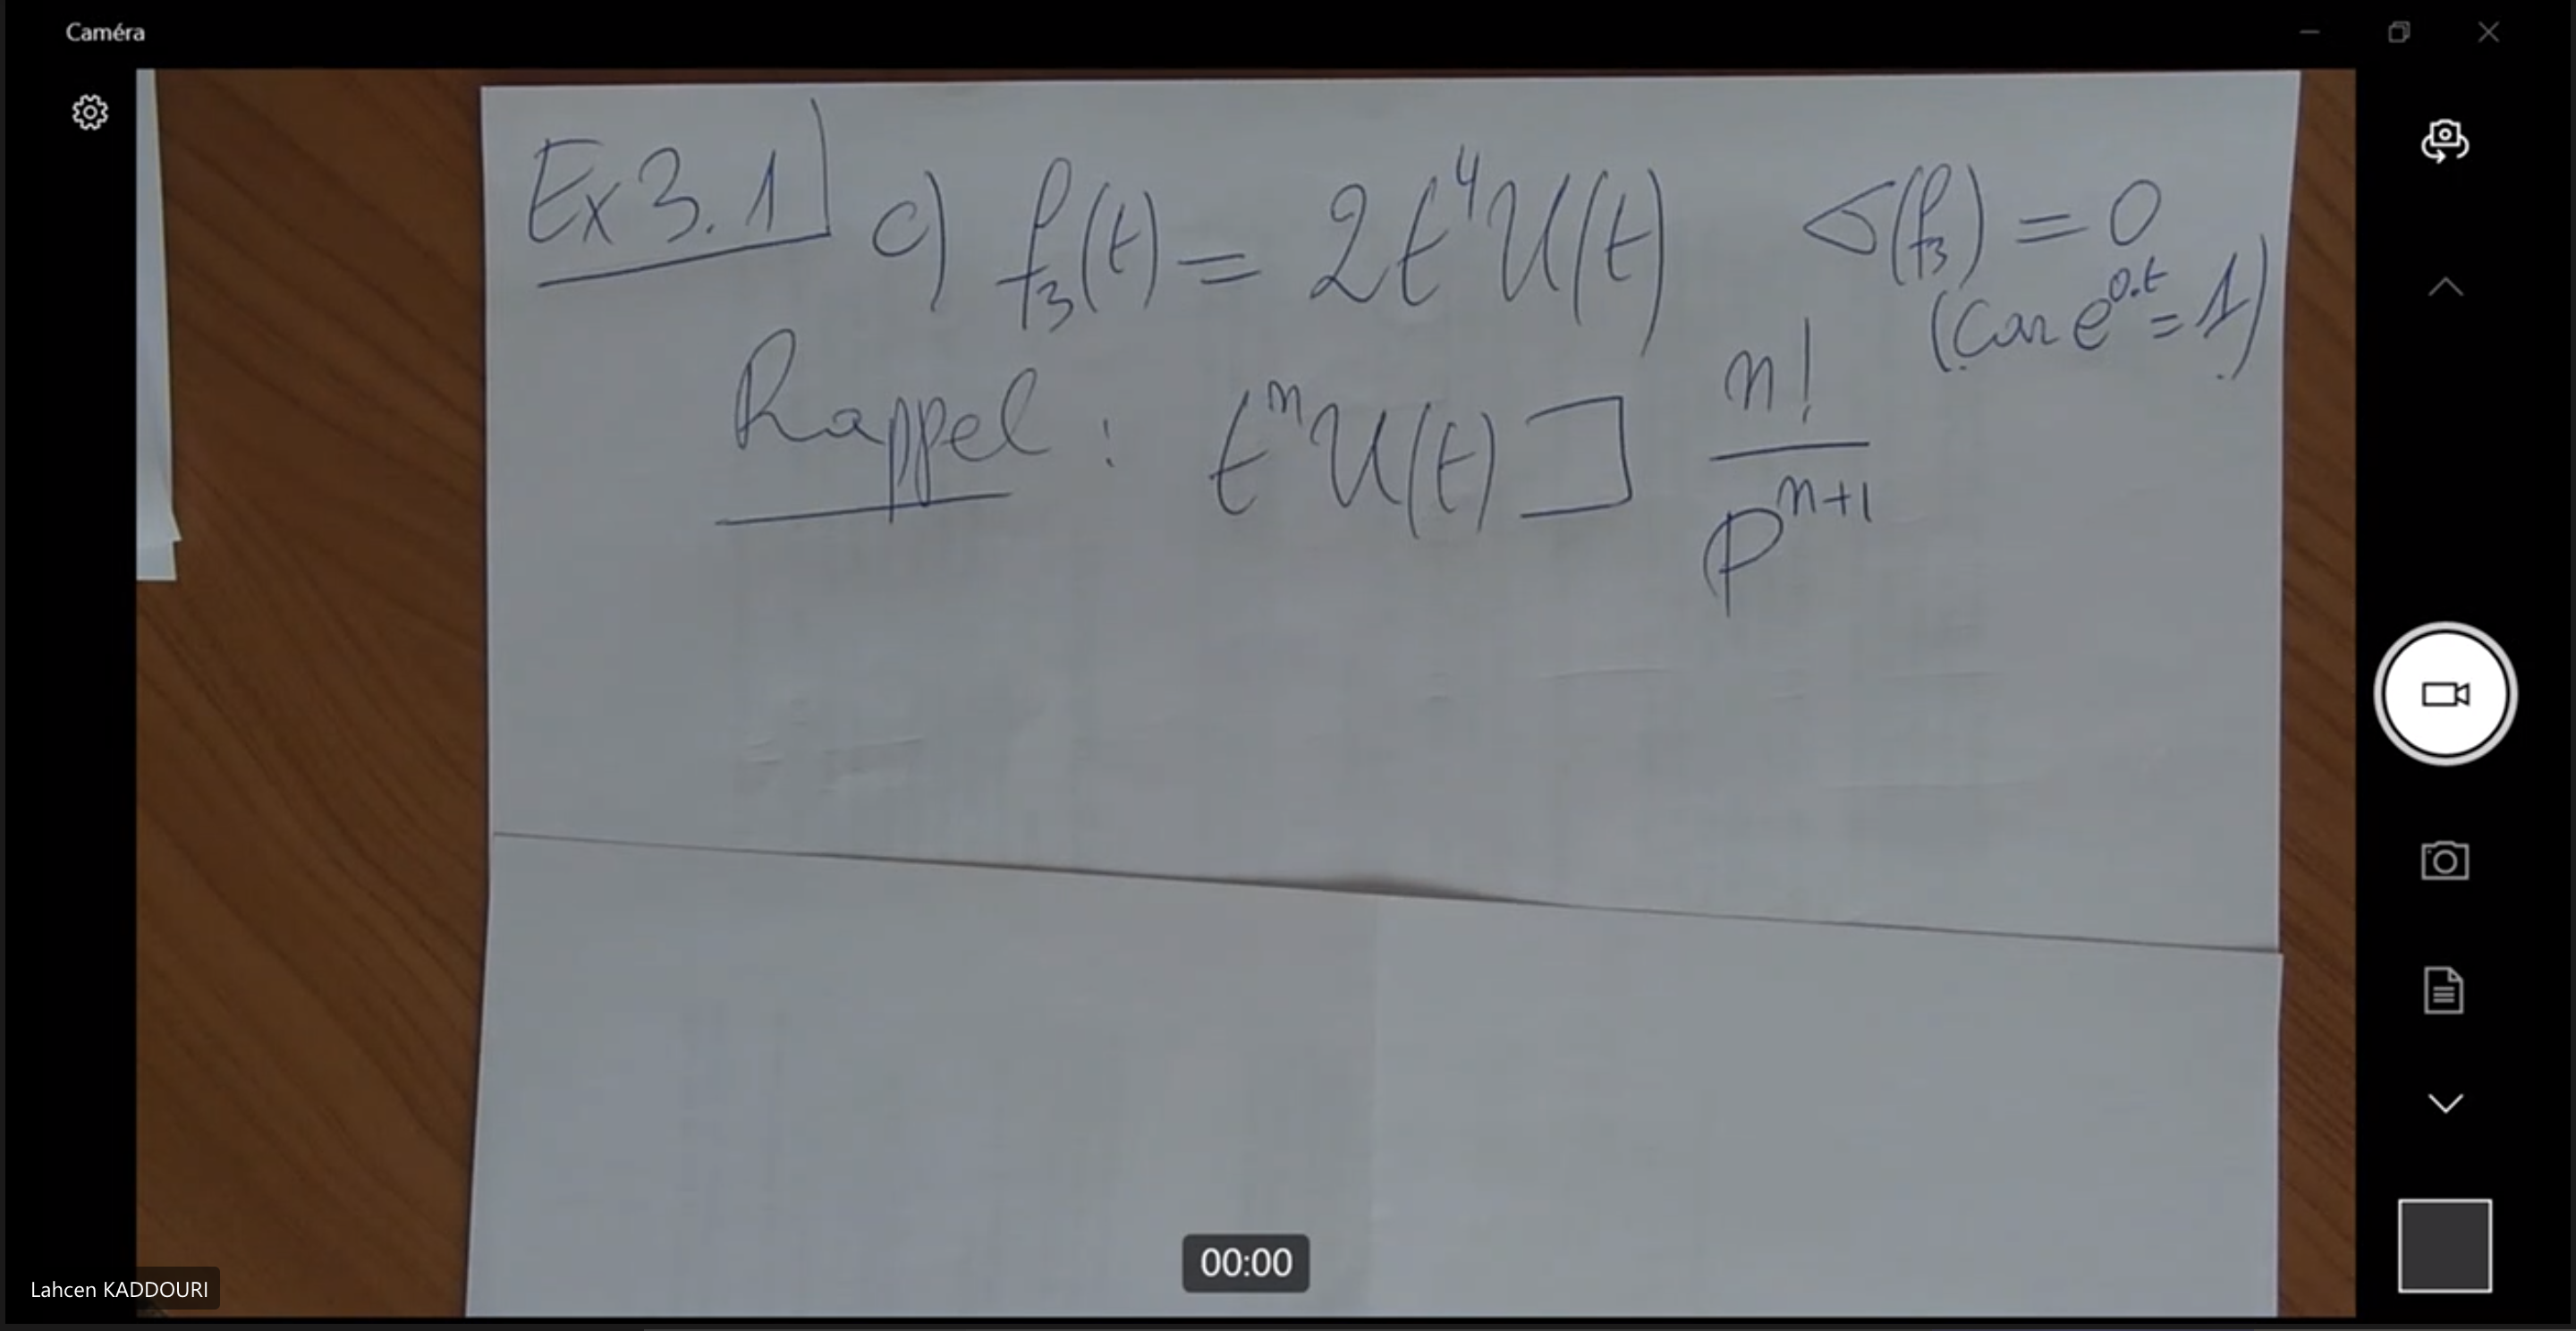 Caméra
Ex 3.1 c) f₃(t) = 2t⁴U(t) σ(f₃) = 0
(Car e^{0.t} = 1)
Rappel : tⁿU(t) ⊐ n!/p^{n+1}
00:00
Lahcen KADDOURI